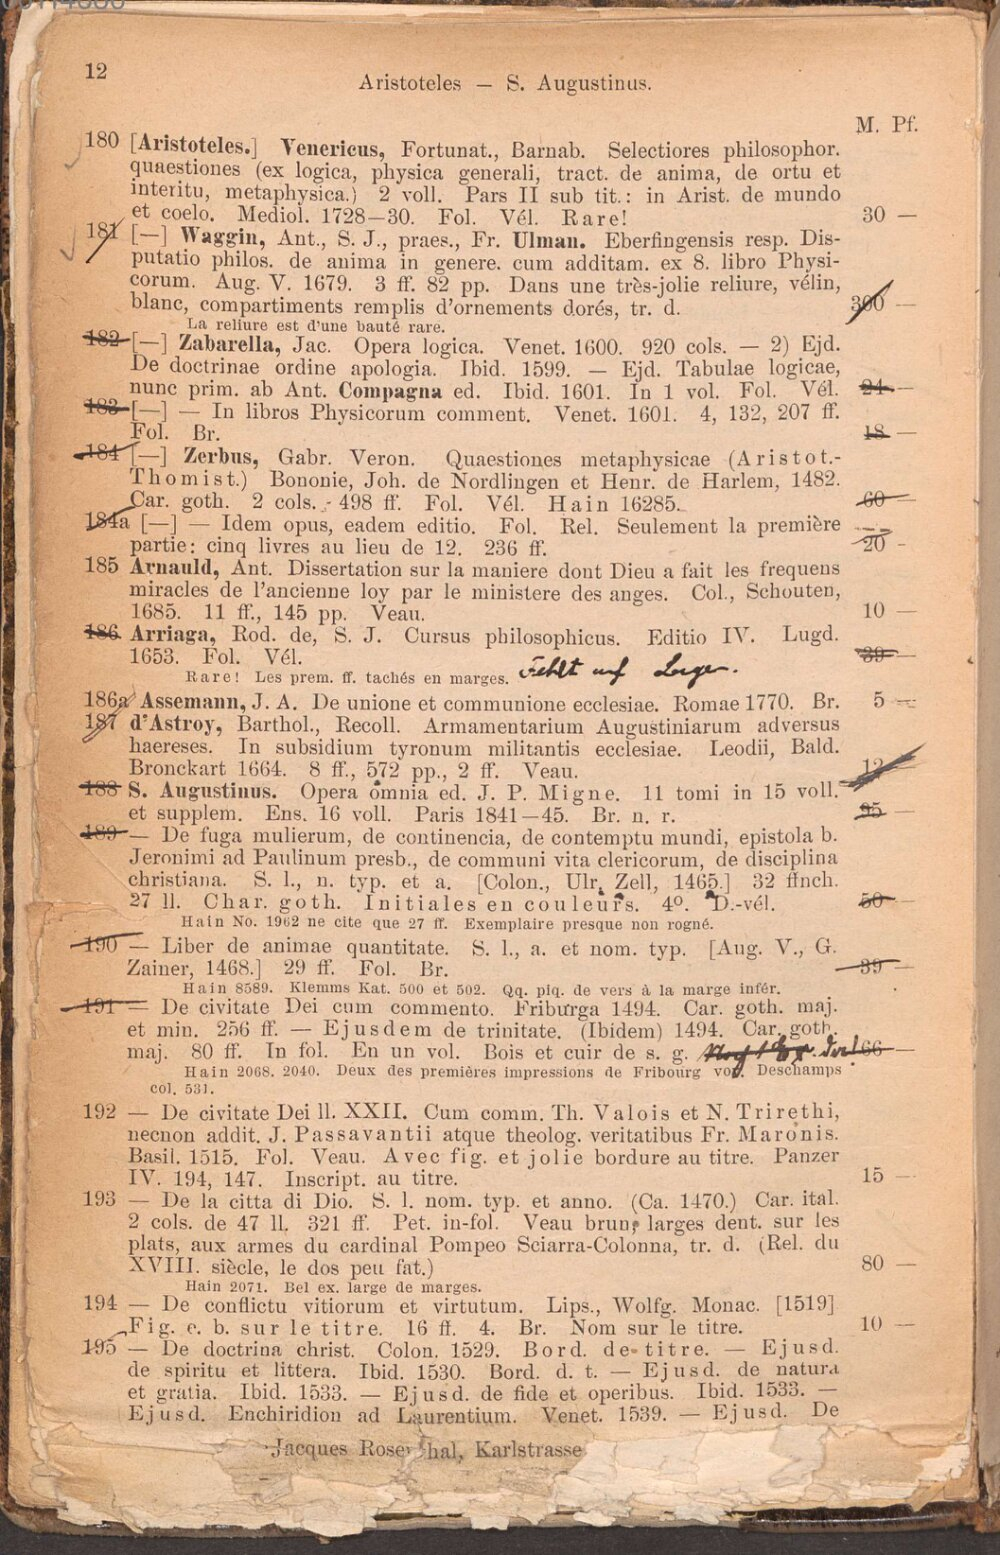 12
Aristoteles — S. Augustinus.
M. Pf.
180 [Aristoteles.] Venericus, Fortunat., Barnab. Selectiores philosophor.
quaestiones (ex logica, physica generali, tract. de anima, de ortu et
interitu, metaphysica.) 2 voll. Pars II sub tit.: in Arist. de mundo
et coelo. Mediol. 1728—30. Fol. Vél. Rare! 30 —
181 [—] Waggin, Ant., S. J., praes., Fr. Ulman. Eberfingensis resp. Dis-
putatio philos. de anima in genere. cum additam. ex 8. libro Physi-
corum. Aug. V. 1679. 3 ff. 82 pp. Dans une très-jolie reliure, vélin,
blanc, compartiments remplis d'ornements dorés, tr. d. 300 —
La reliure est d'une bauté rare.
182 [—] Zabarella, Jac. Opera logica. Venet. 1600. 920 cols. — 2) Ejd.
De doctrinae ordine apologia. Ibid. 1599. — Ejd. Tabulae logicae,
nunc prim. ab Ant. Compagna ed. Ibid. 1601. In 1 vol. Fol. Vél. 24 —
183 [—] — In libros Physicorum comment. Venet. 1601. 4, 132, 207 ff.
Fol. Br. 18 —
184 [—] Zerbus, Gabr. Veron. Quaestiones metaphysicae (Aristot.-
Thomist.) Bononie, Joh. de Nordlingen et Henr. de Harlem, 1482.
Car. goth. 2 cols. 498 ff. Fol. Vél. Hain 16285. 60 —
184a [—] — Idem opus, eadem editio. Fol. Rel. Seulement la première
partie: cinq livres au lieu de 12. 236 ff. 20 -
185 Arnauld, Ant. Dissertation sur la maniere dont Dieu a fait les frequens
miracles de l'ancienne loy par le ministere des anges. Col., Schouten,
1685. 11 ff., 145 pp. Veau. 10 —
186 Arriaga, Rod. de, S. J. Cursus philosophicus. Editio IV. Lugd.
1653. Fol. Vél. 39 —
Rare! Les prem. ff. tachés en marges. Fehlt auf Lager.
186a Assemann, J. A. De unione et communione ecclesiae. Romae 1770. Br. 5 —
187 d'Astroy, Barthol., Recoll. Armamentarium Augustiniarum adversus
haereses. In subsidium tyronum militantis ecclesiae. Leodii, Bald.
Bronckart 1664. 8 ff., 572 pp., 2 ff. Veau. 12 —
188 S. Augustinus. Opera omnia ed. J. P. Migne. 11 tomi in 15 voll.
et supplem. Ens. 16 voll. Paris 1841—45. Br. n. r. 95 —
189 — De fuga mulierum, de continencia, de contemptu mundi, epistola b.
Jeronimi ad Paulinum presb., de communi vita clericorum, de disciplina
christiana. S. l., n. typ. et a. [Colon., Ulr. Zell, 1465.] 32 ffnch.
27 ll. Char. goth. Initiales en couleurs. 4º. D.-vél. 50 —
Hain No. 1962 ne cite que 27 ff. Exemplaire presque non rogné.
190 — Liber de animae quantitate. S. l., a. et nom. typ. [Aug. V., G.
Zainer, 1468.] 29 ff. Fol. Br. 39 —
Hain 8589. Klemms Kat. 500 et 502. Qq. piq. de vers à la marge infér.
191 — De civitate Dei cum commento. Friburga 1494. Car. goth. maj.
et min. 256 ff. — Ejusdem de trinitate. (Ibidem) 1494. Car. goth.
maj. 80 ff. In fol. En un vol. Bois et cuir de s. g. 66 —
Hain 2068. 2040. Deux des premières impressions de Fribourg voy. Deschamps
col. 531.
192 — De civitate Dei ll. XXII. Cum comm. Th. Valois et N. Trirethi,
necnon addit. J. Passavantii atque theolog. veritatibus Fr. Maronis.
Basil. 1515. Fol. Veau. Avec fig. et jolie bordure au titre. Panzer
IV. 194, 147. Inscript. au titre. 15 —
193 — De la citta di Dio. S. l. nom. typ. et anno. (Ca. 1470.) Car. ital.
2 cols. de 47 ll. 321 ff. Pet. in-fol. Veau brun, larges dent. sur les
plats, aux armes du cardinal Pompeo Sciarra-Colonna, tr. d. (Rel. du
XVIII. siècle, le dos peu fat.) 80 —
Hain 2071. Bel ex. large de marges.
194 — De conflictu vitiorum et virtutum. Lips., Wolfg. Monac. [1519]
Fig. e. b. sur le titre. 16 ff. 4. Br. Nom sur le titre. 10 —
195 — De doctrina christ. Colon. 1529. Bord. de titre. — Ejusd.
de spiritu et littera. Ibid. 1530. Bord. d. t. — Ejusd. de natura
et gratia. Ibid. 1533. — Ejusd. de fide et operibus. Ibid. 1533. —
Ejusd. Enchiridion ad Laurentium. Venet. 1539. — Ejusd. De
Jacques Rosenthal, Karlstrasse